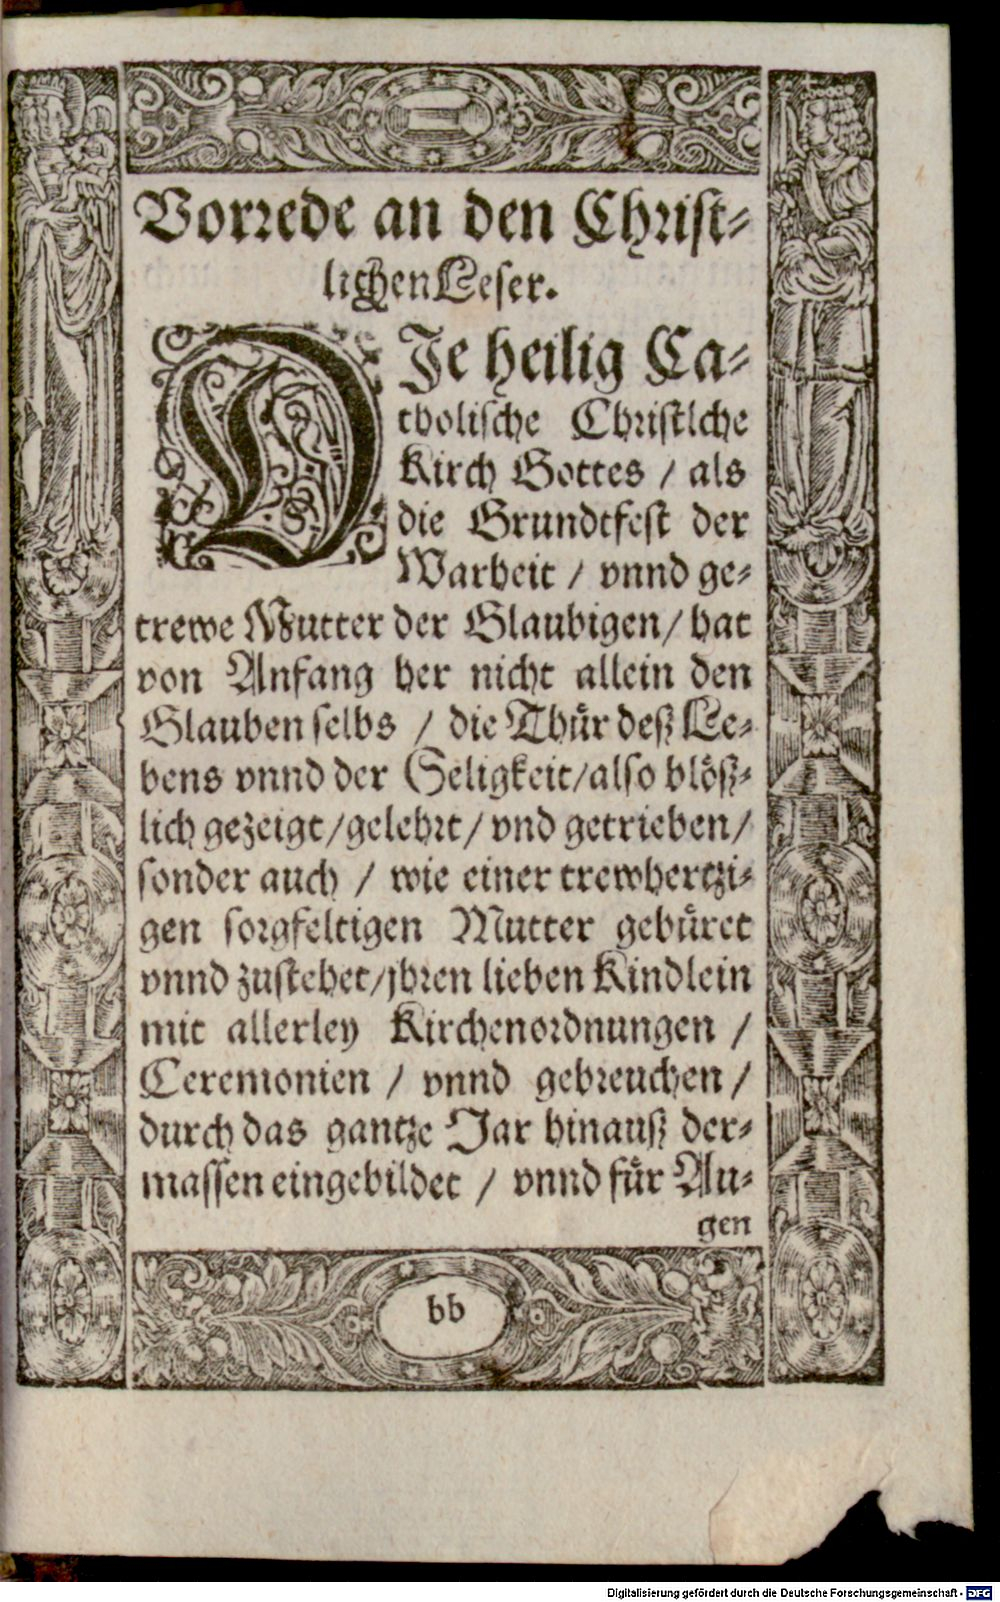 Vorrede an den Christ⸗
lichen Leser.
DJe heilig Ca⸗
tholische Christlche
Kirch Gottes / als
die Grundtfest der
Warheit / vnnd ge⸗
trewe Mutter der Glaubigen / hat
von Anfang her nicht allein den
Glauben selbs / die Thuͤr deß Le⸗
bens vnnd der Seligkeit / also bloͤß⸗
lich gezeigt / gelehrt / vnd getrieben /
sonder auch / wie einer trewhertzi⸗
gen sorgfeltigen Mutter gebuͤret
vnnd zustehet / jhren lieben Kindlein
mit allerley Kirchenordnungen /
Ceremonien / vnnd gebreuchen /
durch das gantze Jar hinauß der⸗
massen eingebildet / vnnd fuͤr Au⸗
gen
bb
Digitalisierung gefördert durch die Deutsche Forschungsgemeinschaft - DFG